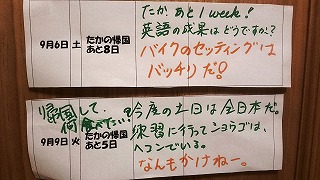 9月6日 土
たかの帰国
あと8日
たか あと1week!
英語の成果はどうですか?
バイクのセッティングは
バッチリだ!
9月9日 火
たかの帰国
あと5日
帰国して、
何食べたい?
今度の土日は全日本だ。
練習に行ってショウゴは、
ヘコンでいる。
なんもかけねー。